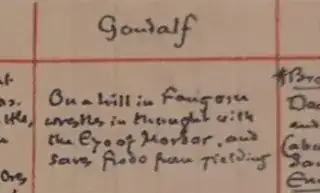 Gandalf
On a hill in Fangorn
wrestles in thought with
the Eye of Mordor, and
saves Frodo from yielding
and